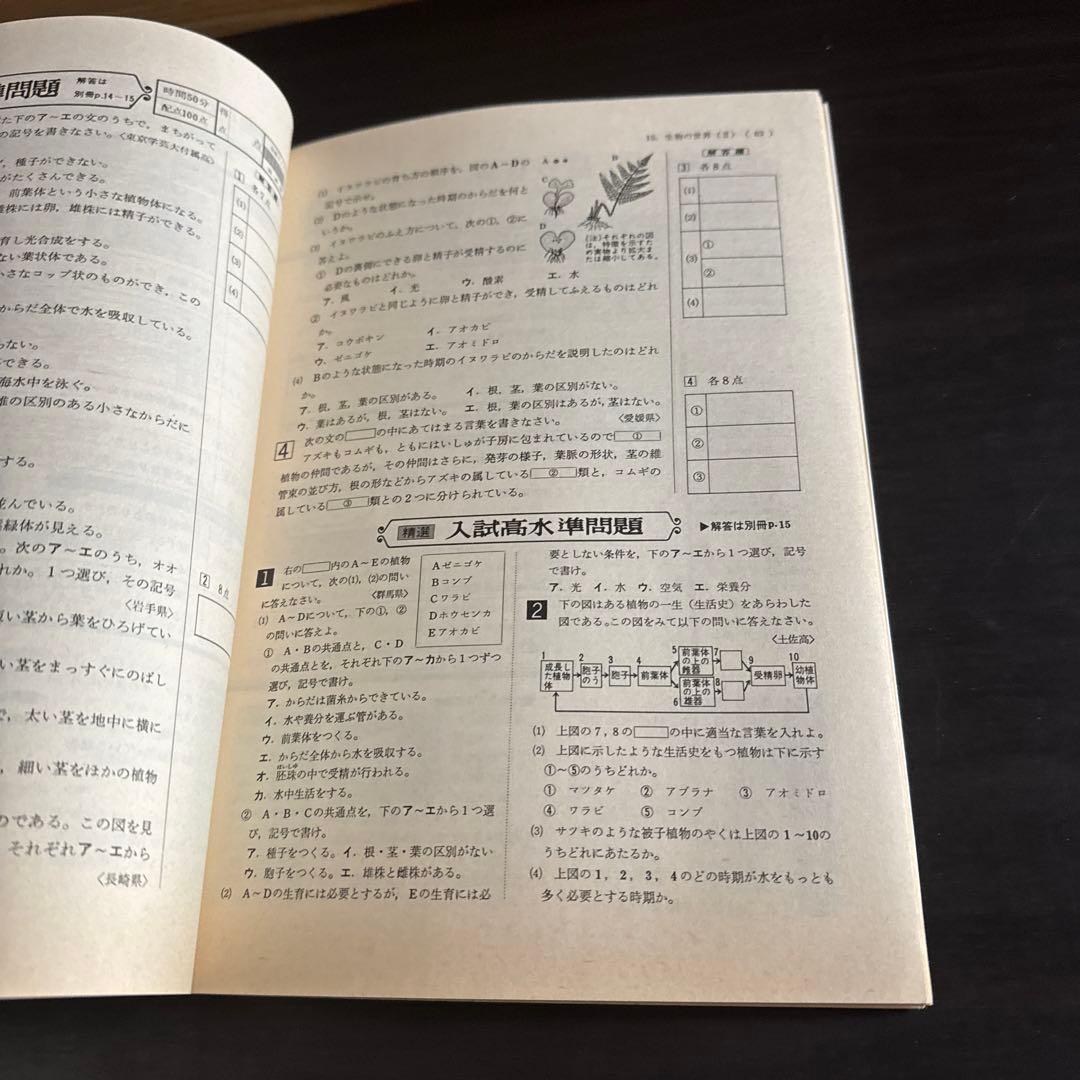 準問題
解答は
別冊p.14−15
時間50分
配点100点
得点
点
た下のア〜エの文のうちで，まちがって
の記号を書きなさい。〈東京学芸大付属高〉
，種子ができない。
がたくさんできる。
前葉体という小さな植物体になる。
雌株には卵，雄株には精子ができる。
育し光合成をする。
ない葉状体である。
小さなコップ状のものができ，この
からだ全体で水を吸収している。
らない。
できる。
海水中を泳ぐ。
雄の区別のある小さなからだに
する。
並んでいる。
緑体が見える。
。次のア〜エのうち，オオ
れか。1つ選び，その記号
〈岩手県〉
い茎から葉をひろげてい
い茎をまっすぐにのばし
で，太い茎を地中に横に
，細い茎をほかの植物
のである。この図を見
それぞれア〜エから
〈長崎県〉
1 各7点
(1)
(2)
(3)
(4)
2 8点
10. 生物の世界（Ⅱ）（63）
(1) イヌワラビの育ち方の順序を，図のA〜Dの
記号で示せ。
(2) Dのような状態になった時期のからだを何と
いうか。
(3) イヌワラビのふえ方について，次の①，②に
答えよ。
① Dの裏側にできる卵と精子が受精するのに
必要なものはどれか。
ア．風 イ．光 ウ．酸素 エ．水
② イヌワラビと同じように卵と精子ができ，受精してふえるものはどれ
か。
ア．コウボキン イ．アオカビ
ウ．ゼニゴケ エ．アオミドロ
(4) Bのような状態になった時期のイヌワラビのからだを説明したのはどれ
か。
ア．根，茎，葉の区別がある。 イ．根，茎，葉の区別がない。
ウ．葉はあるが，根，茎はない。 エ．根，葉の区別はあるが，茎はない。
〈愛媛県〉
A
B
C
D
(注)それぞれの図
は，特徴を示すた
め実物より拡大ま
たは縮小してある。
4 次の文の□の中にあてはまる言葉を書きなさい。
アズキもコムギも，ともにはいしゅが子房に包まれているので①
植物の仲間であるが，その仲間はさらに，発芽の様子，葉脈の形状，茎の維
管束の並び方，根の形などからアズキの属している②類と，コムギの
属している③類との2つに分けられている。
解答欄
3 各8点
(1)
(2)
(3) ①
②
(4)
4 各8点
①
②
③
精選 入試高水準問題 ▶解答は別冊p・15
1 右の□内のA〜Eの植物
について，次の(1)，(2)の問い
に答えなさい。 〈群馬県〉
A ゼニゴケ
B コンブ
C ワラビ
D ホウセンカ
E アオカビ
(1) A〜Dについて，下の①，②
の問いに答えよ。
① A・Bの共通点と，C・D
の共通点とを，それぞれ下のア〜カから1つずつ
選び，記号で書け。
ア．からだは菌糸からできている。
イ．水や養分を運ぶ管がある。
ウ．前葉体をつくる。
エ．からだ全体から水を吸収する。
オ．胚珠の中で受精が行われる。
はいしゅ
カ．水中生活をする。
② A・B・Cの共通点を，下のア〜エから1つ選
び，記号で書け。
ア．種子をつくる。イ．根・茎・葉の区別がない
ウ．胞子をつくる。エ．雄株と雌株がある。
(2) A〜Dの生育には必要とするが，Eの生育には必
要としない条件を，下のア〜エから1つ選び，記号
で書け。
ア．光 イ．水 ウ．空気 エ．栄養分
2 下の図はある植物の一生（生活史）をあらわした
図である。この図をみて以下の問いに答えなさい。
〈土佐高〉
1 成長した植物体
2 胞子のう
3 胞子
4 前葉体
5 前葉体の上の雌器
6 前葉体の上の雄器
7
8
9 受精卵
10 幼植物体
(1) 上図の7,8の□の中に適当な言葉を入れよ。
(2) 上図に示したような生活史をもつ植物は下に示す
①〜⑤のうちどれか。
① マツタケ ② アブラナ ③ アオミドロ
④ ワラビ ⑤ コンブ
(3) サツキのような被子植物のやくは上図の1〜10の
うちどれにあたるか。
(4) 上図の1，2，3，4のどの時期が水をもっとも
多く必要とする時期か。